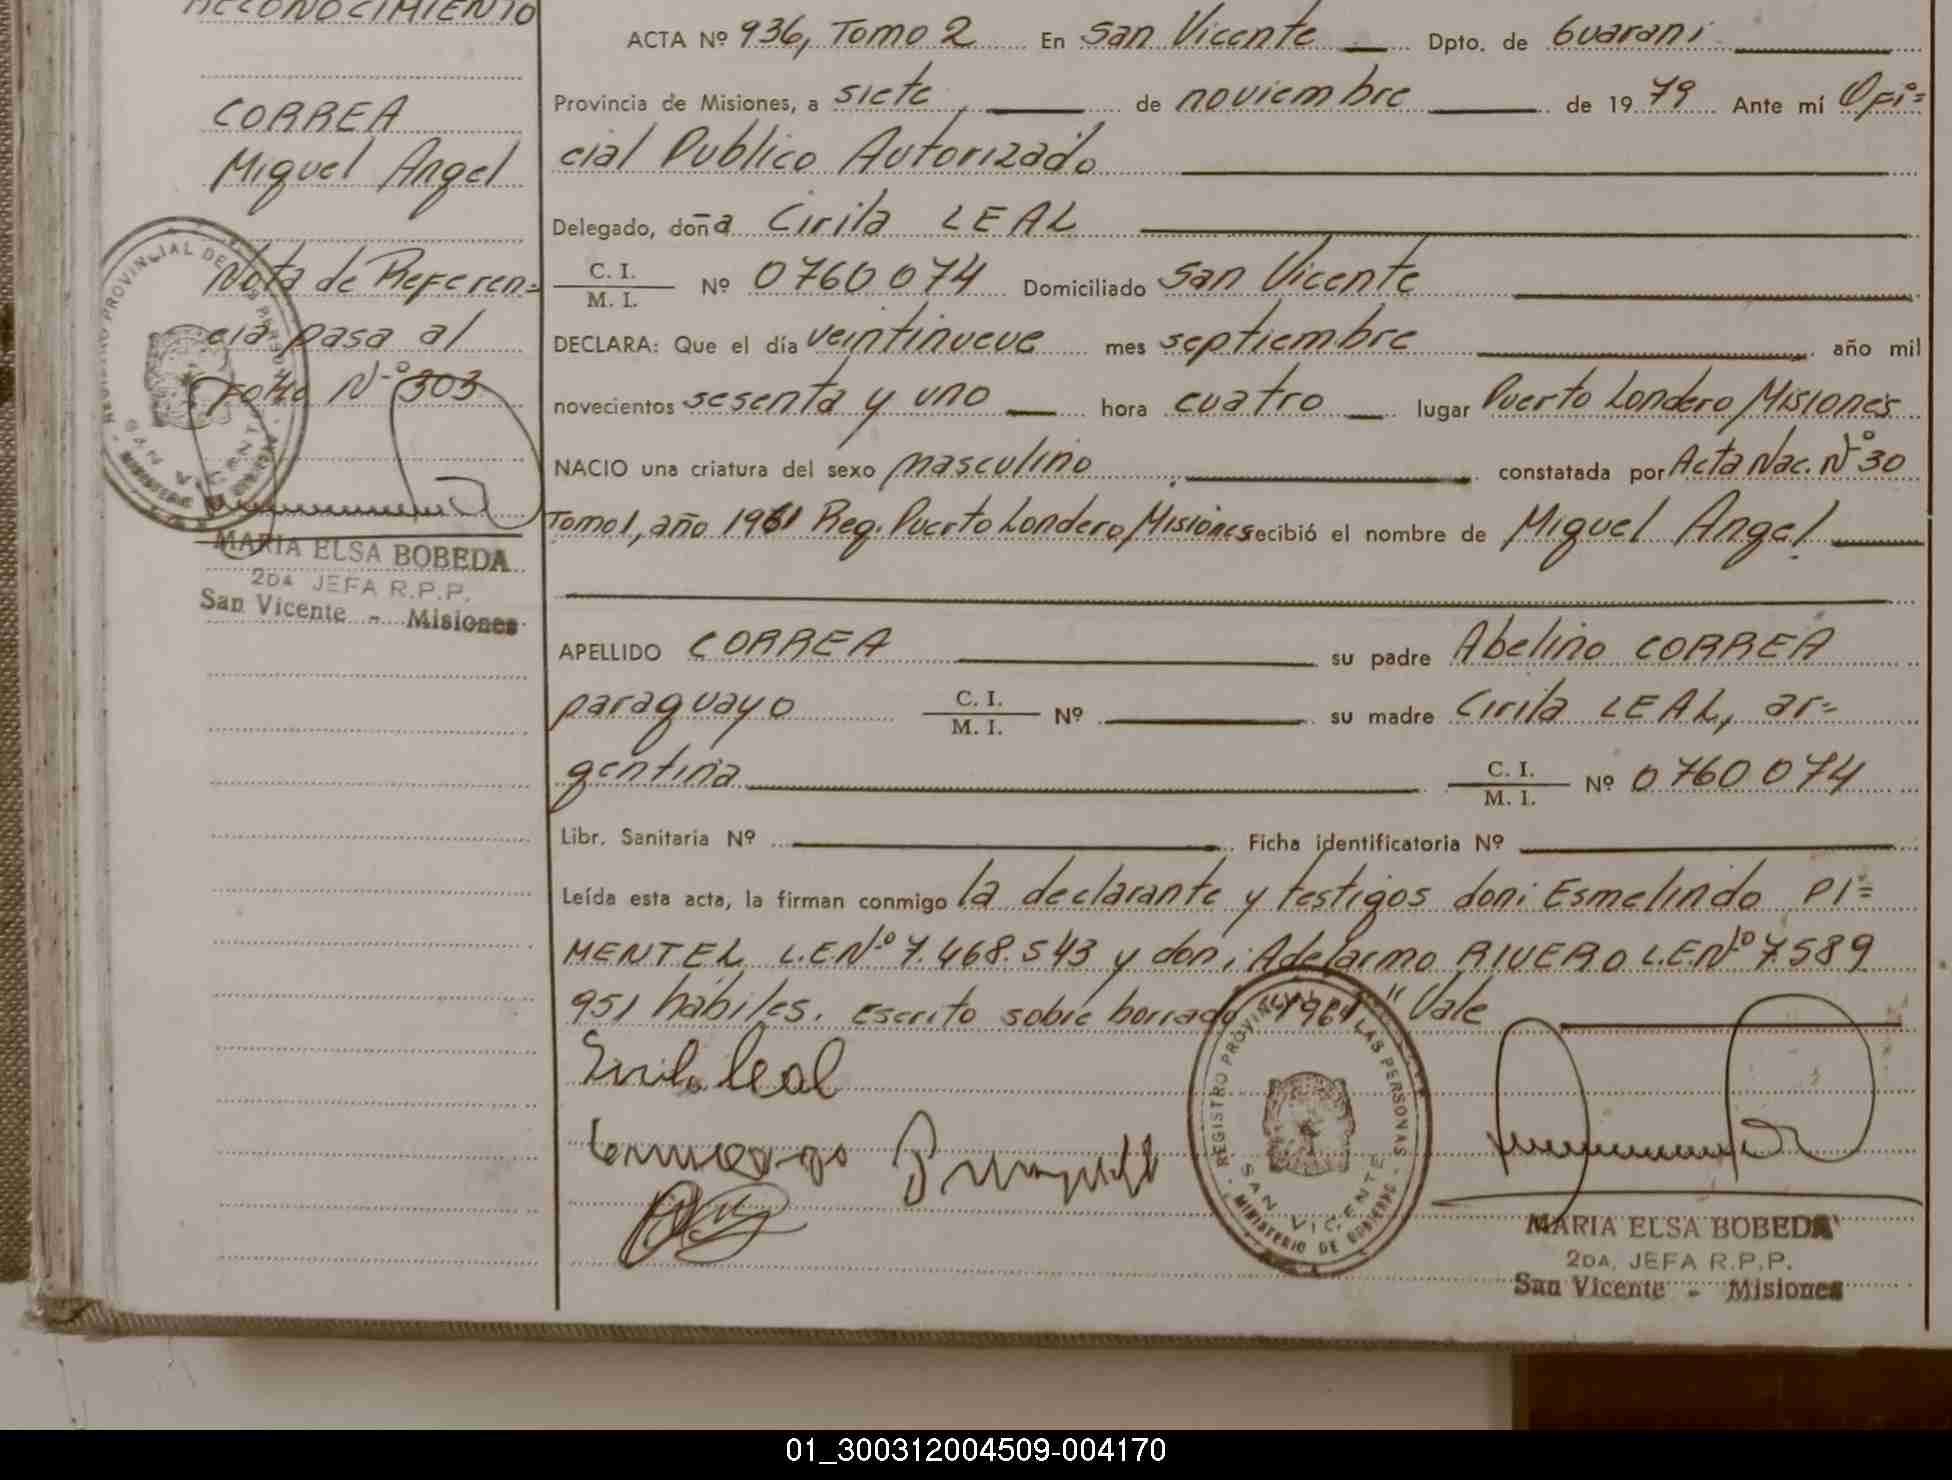 RECONOCIMIENTO
CORREA
Miguel Angel
Nota de Referen=
cia pasa al
Folio Nº 303
MARIA ELSA BOBEDA
2DA JEFA R.P.P.
San Vicente - Misiones
REGISTRO PROVINCIAL DE LAS PERSONAS
SAN VICENTE
MINISTERIO DE GOBIERNO
ACTA Nº 936, Tomo 2 En San Vicente Dpto. de Guaraní
Provincia de Misiones, a siete, de noviembre de 1979 Ante mí Ofi=
cial Publico Autorizado
Delegado, doña Cirila LEAL
C. I. / M. I. Nº 0760074 Domiciliado San Vicente
DECLARA: Que el día veintinueve mes septiembre año mil
novecientos sesenta y uno hora cuatro lugar Puerto Londero, Misiones
NACIO una criatura del sexo masculino constatada por Acta Nac. Nº 30
Tomo 1, año 1961 Reg. Puerto Londero, Misiones recibió el nombre de Miguel Angel
APELLIDO CORREA su padre Abelino CORREA
paraguayo C. I. / M. I. Nº su madre Cirila LEAL, ar=
gentina C. I. / M. I. Nº 0760074
Libr. Sanitaria Nº Ficha identificatoria Nº
Leída esta acta, la firman conmigo la declarante y testigos don: Esmelindo PI=
MENTEL L.E.Nº 7.468.543 y don: Adelarmo RIVERO L.E.Nº 7589
951 hábiles. Escrito sobre borrado "1961" Vale
REGISTRO PROVINCIAL DE LAS PERSONAS
SAN VICENTE
MINISTERIO DE GOBIERNO
MARIA ELSA BOBEDA
2DA. JEFA R.P.P.
San Vicente - Misiones
01_300312004509-004170